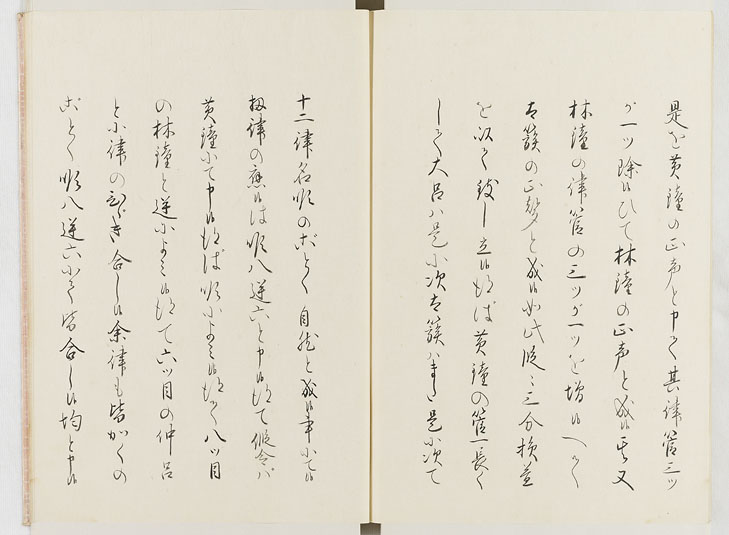 是を黄鐘の正声と申て其律管三ツ
が一ツ除候ひて林鐘の正声と成候其又
林鐘の律管の三ツが一ツを増候へて
太簇の正声と成候如此段々三分損益
を以て致し立候得ば黄鐘の管長く
して大呂ハ是に次太簇ハまた是に次て
十二律名順のごとく自然と成候事にて候
扨律の応候は順八逆六と申候得て仮令ハ
黄鐘にて申候得ば順によミ候得て八ツ目
の林鐘と逆によミ候得て六ツ目の仲呂
と小律のひゞき合し候余律も皆かくの
ごとく順八逆六にて皆合し候均と申候